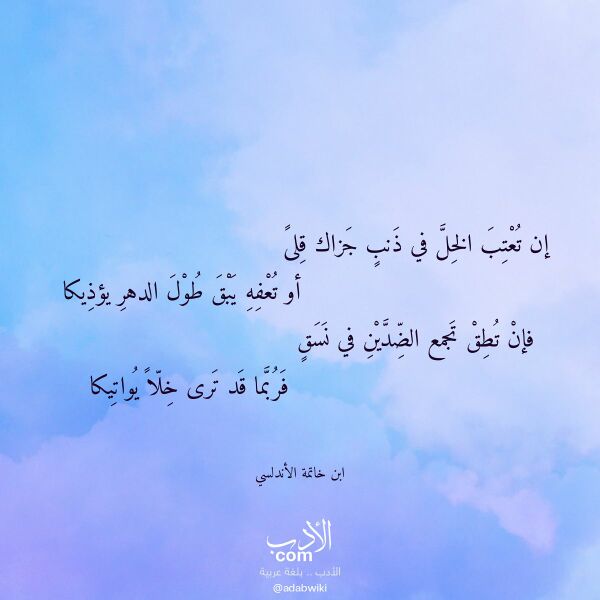 إن تُعْتِبَ الخِلَّ في ذَنبٍ جَزاك قِلىً
أو تُعْفِهِ يَبْقَ طُوْلَ الدهرِ يؤذِيكا
فإنْ تُطِقْ تَجمع الضِّدَّيْنِ في نَسَقٍ
فَرُبَّما قَد تَرى خِلّاً يُواتِيكا
ابن خاتمة الأندلسي
الأدب
com
الأدب .. بلغة عربية
@adabwiki